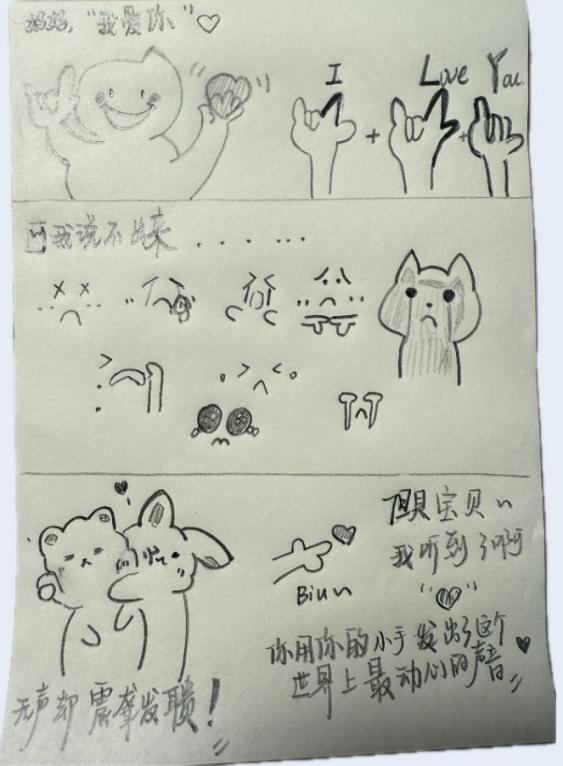 妈妈，“我爱你”♡
I Love You
+ +
可我说不出来......
但是宝贝~
我听到了啊
Biu~
你用你的小手发出了这个
世界上最动人的声音
无声却震聋发聩！